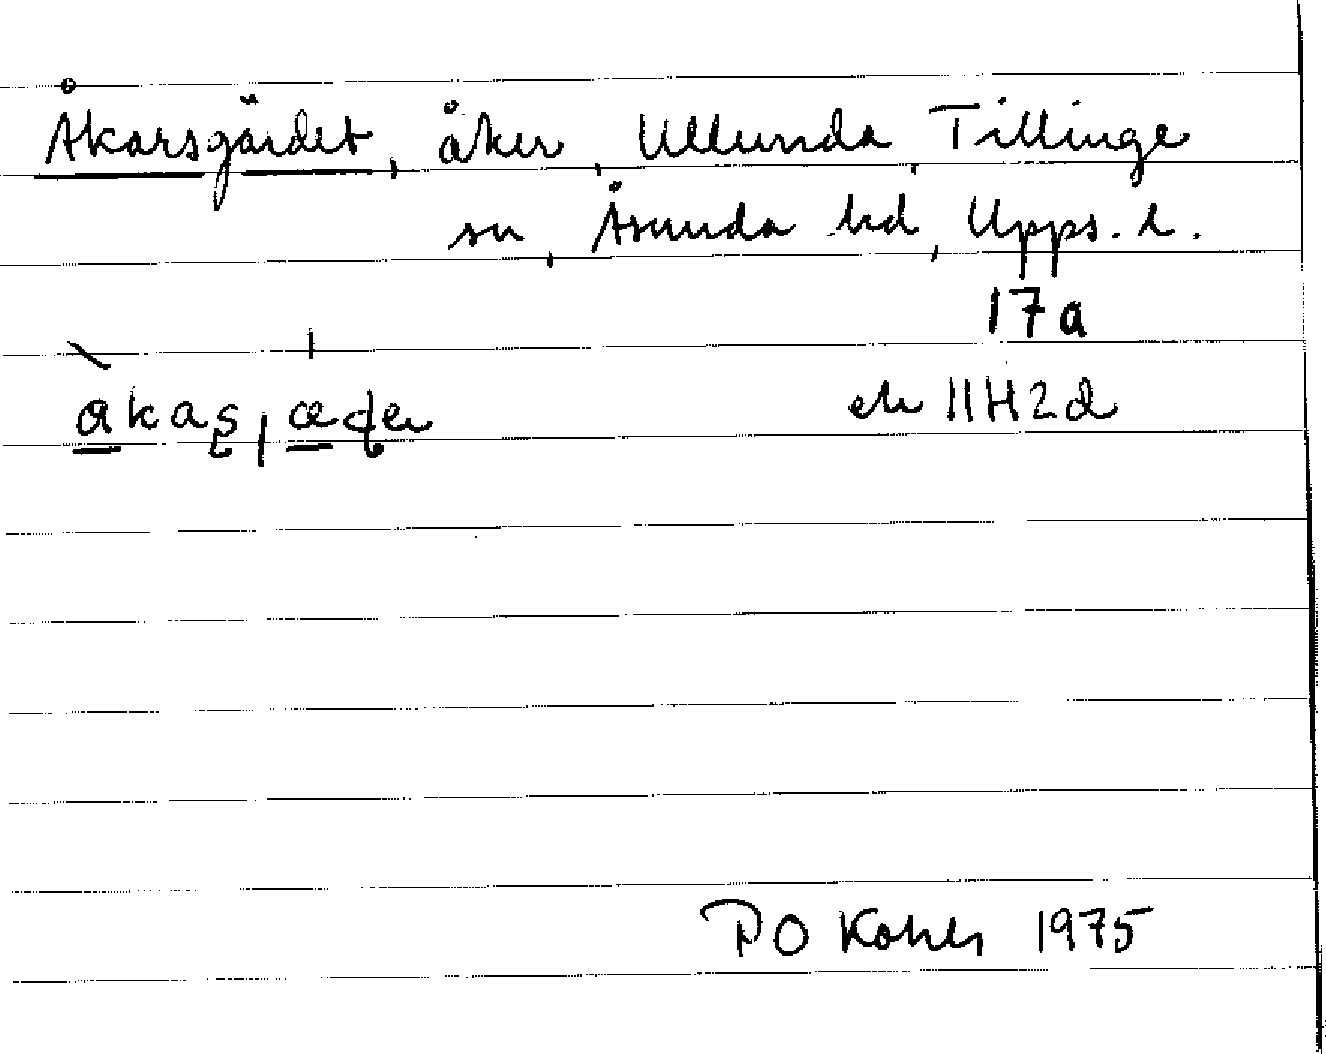 Åkarsgärdet, åker, Ullunda, Tillinge
sn, Åsunda hd, Upps. l.
17a
ek 11H2d
PO 1975